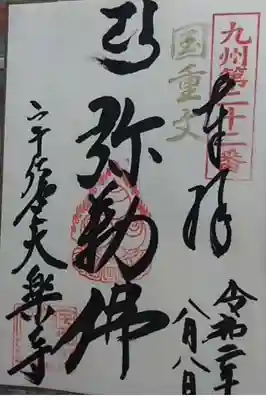 九州第二十二番
奉拝
令和二年
八月八日
国重文
弥勒佛
宇佐宮大楽寺